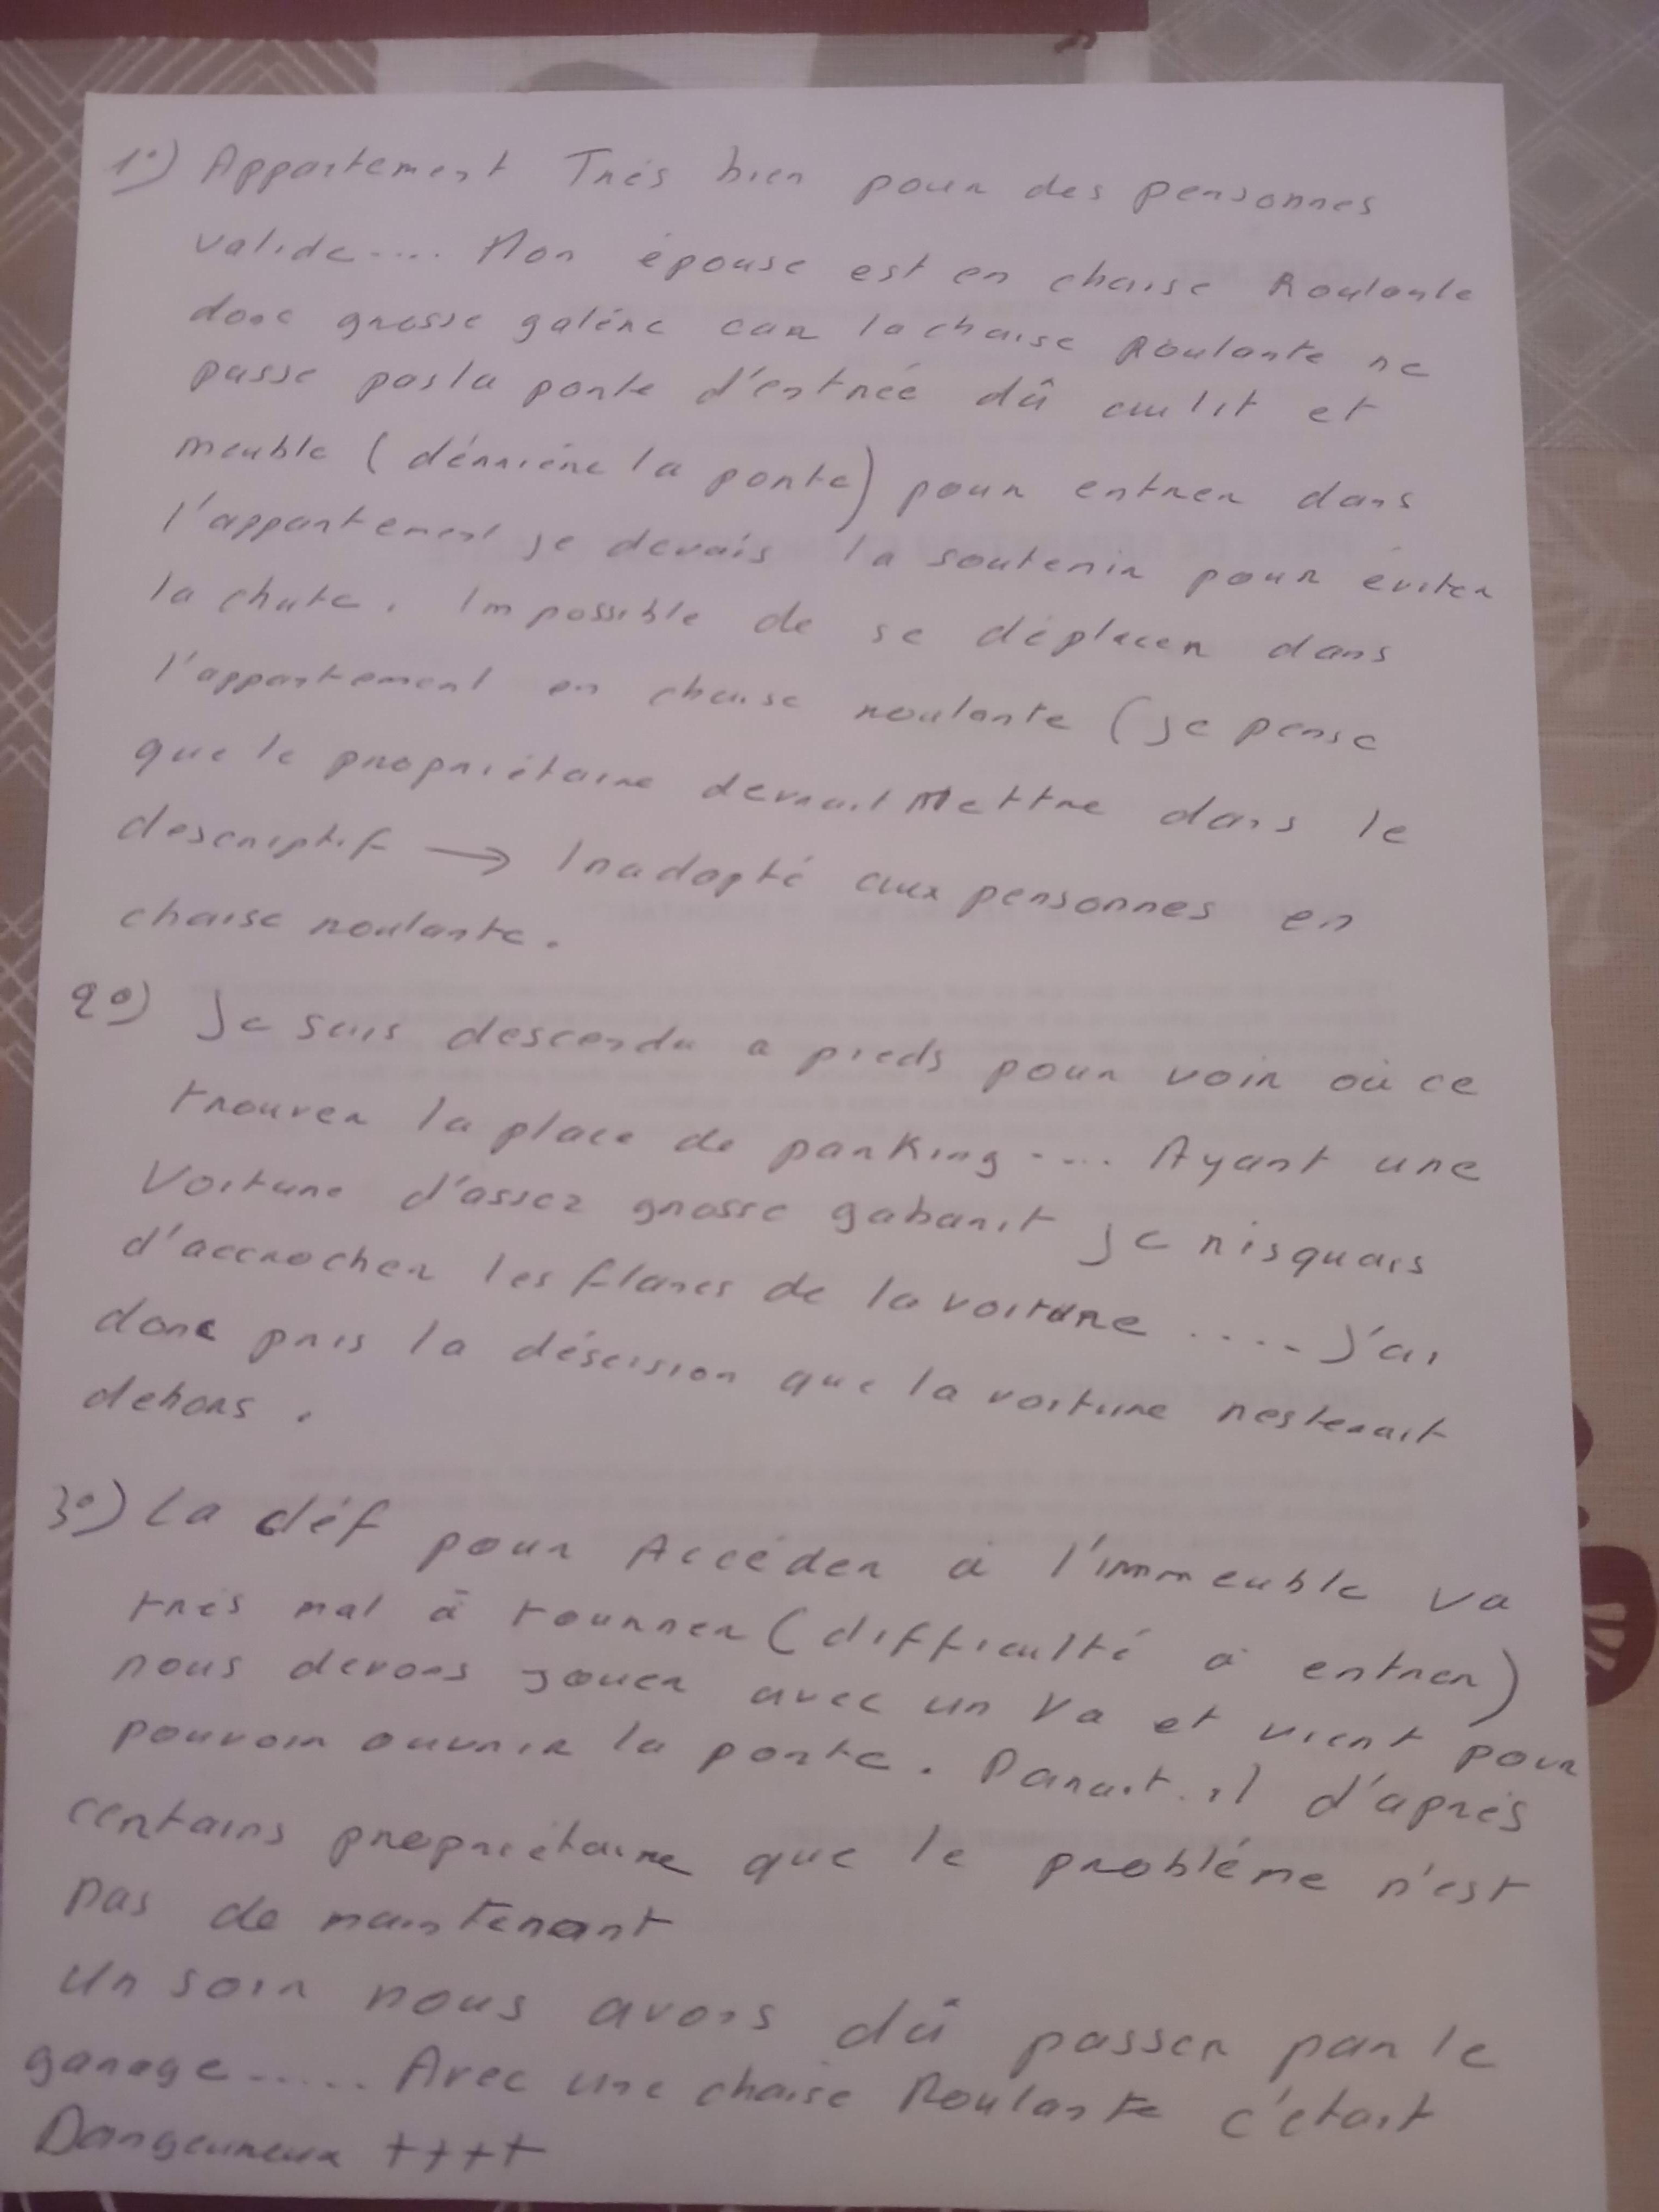 1°) Appartement Très bien pour des personnes
valide.... Mon épouse est en chaise Roulante
donc grosse galère car la chaise Roulante ne
passe pas la porte d'entrée dû au lit et
meuble (dérrière la porte) pour entrer dans
l'appartement je devais la soutenir pour éviter
la chute. Impossible de se déplacer dans
l'appartement en chaise roulante (je pense
que le propriétaire devrait Mettre dans le
descriptif → Inadapté aux personnes en
chaise roulante.
2°) Je suis descendu a pieds pour voir où ce
trouver la place de parking.... Ayant une
Voiture d'assez grosse gabarit je risquais
d'accrocher les flancs de la voiture .... J'ai
donc pris la déscision que la voiture resterait
dehors.
3°) La cléf pour Accéder à l'immeuble va
très mal à tourner (difficulté à entrer)
nous devons jouer avec un Va et vient pour
pouvoir ouvrir la porte. Parait.il d'après
certains propriétaire que le problème n'est
pas de maintenant
Un soir nous avons dû passer par le
garage..... Avec une chaise Roulante c'était
Dangeureux ++++